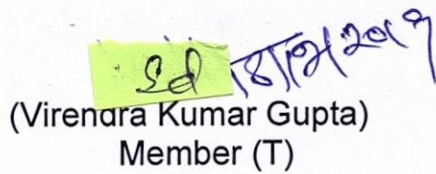 Sd
(Virendra Kumar Gupta)
Member (T)